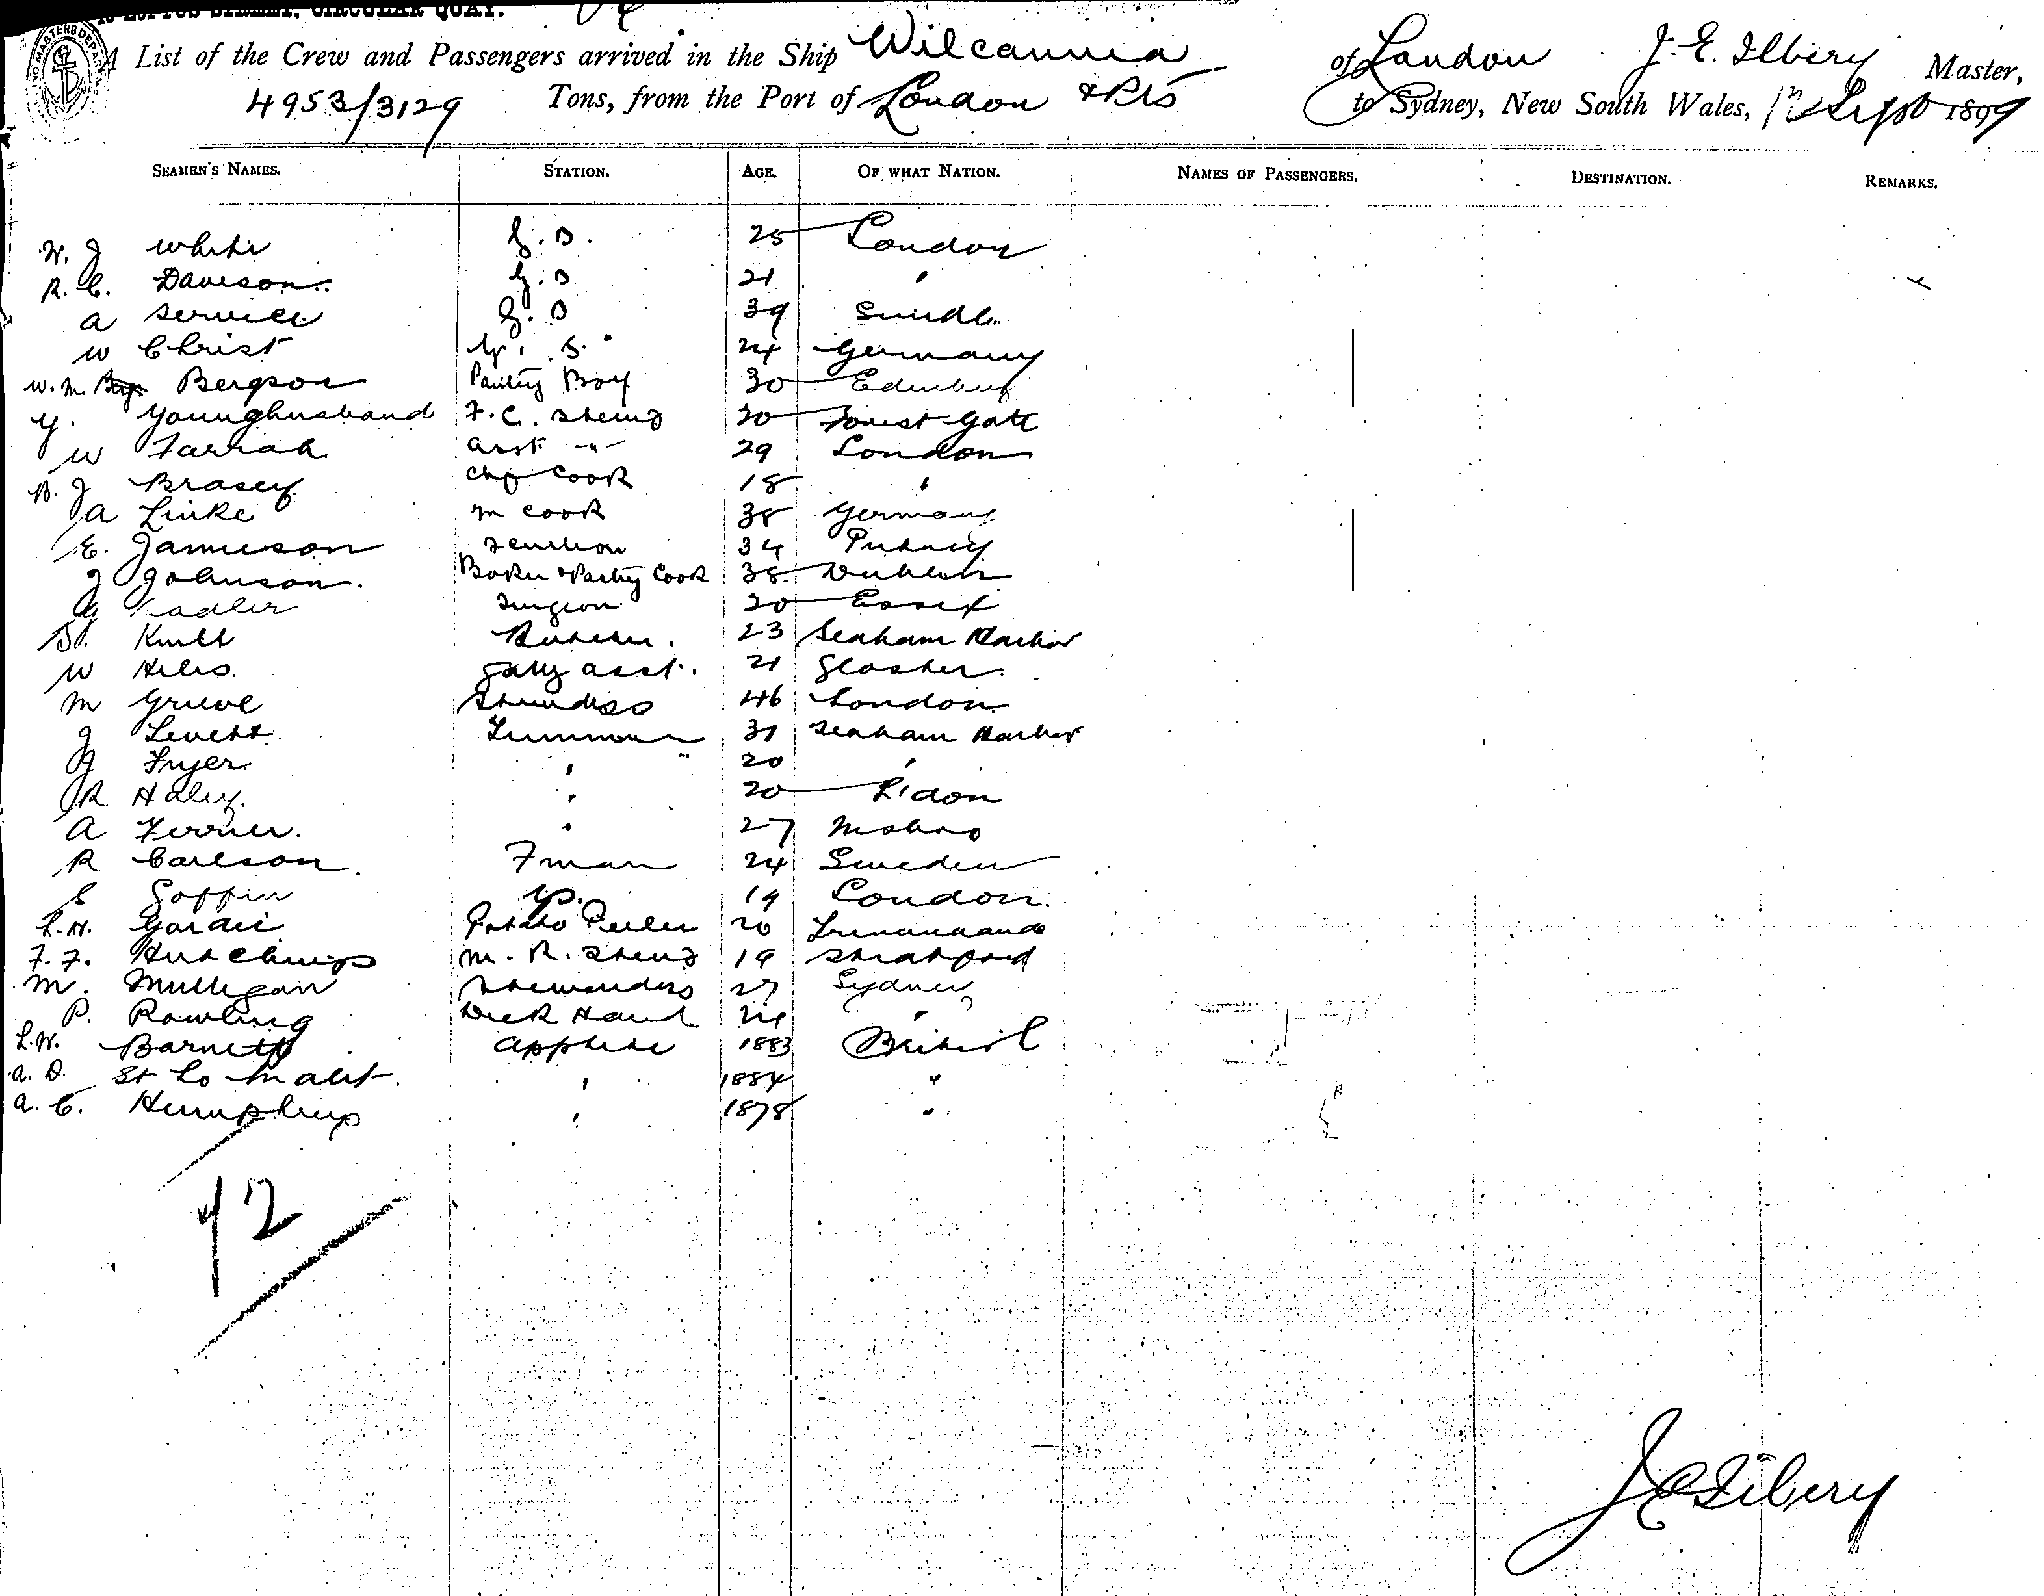 LOFTUS STREET, CIRCULAR QUAY.
A List of the Crew and Passengers arrived in the Ship Wilcannia of London J. E. Ilbery Master,
4953/3129 Tons, from the Port of London & Pts to Sydney, New South Wales, Sept 1899
SEAMEN'S NAMES. STATION. AGE. OF WHAT NATION. NAMES OF PASSENGERS. DESTINATION. REMARKS.
W. J White G. S. 25 London
R. C. Daveson G. S 21 "
A Service G. S 39
W Christ G. S. 24 Germany
W. M. Bergson Pantry Boy 30
Y. Younghusband F. C. Stewd 20 Forest Gate
W Farrah Asst " 29 London
B. J Brasey Cook 18 "
A Linke m Cook 38 Germany
E. Jamieson Scullion 34 Putney
J Johnson. Baker & Pastry Cook 38 Dublin
Sadler Surgeon 20 Essex
Knill Butcher. 23 Seaham Harbor
W Hiles. Gally asst. 21 Gloster
M Grieve Stewdess 46 London
J Levett Trimmer 31 Seaham Harbor
Fryer " 20 "
R Haley. " 20
A Ferrier. " 27
R Carlson Fman 24 Sweden
E Goffin 19 London
L. H. Potato Peeler 20
F. F. Hutchings M. R. Stewd 19 Stratford
M. Mulligan Stewardess 27 Sydney
P. Rawling Deck Hand 24 "
L. W. Barnett Apptice 1883 British
A. D. St Lo Malet " 1884 "
A. C. Humphrys " 1878 "
42
J E Ilbery